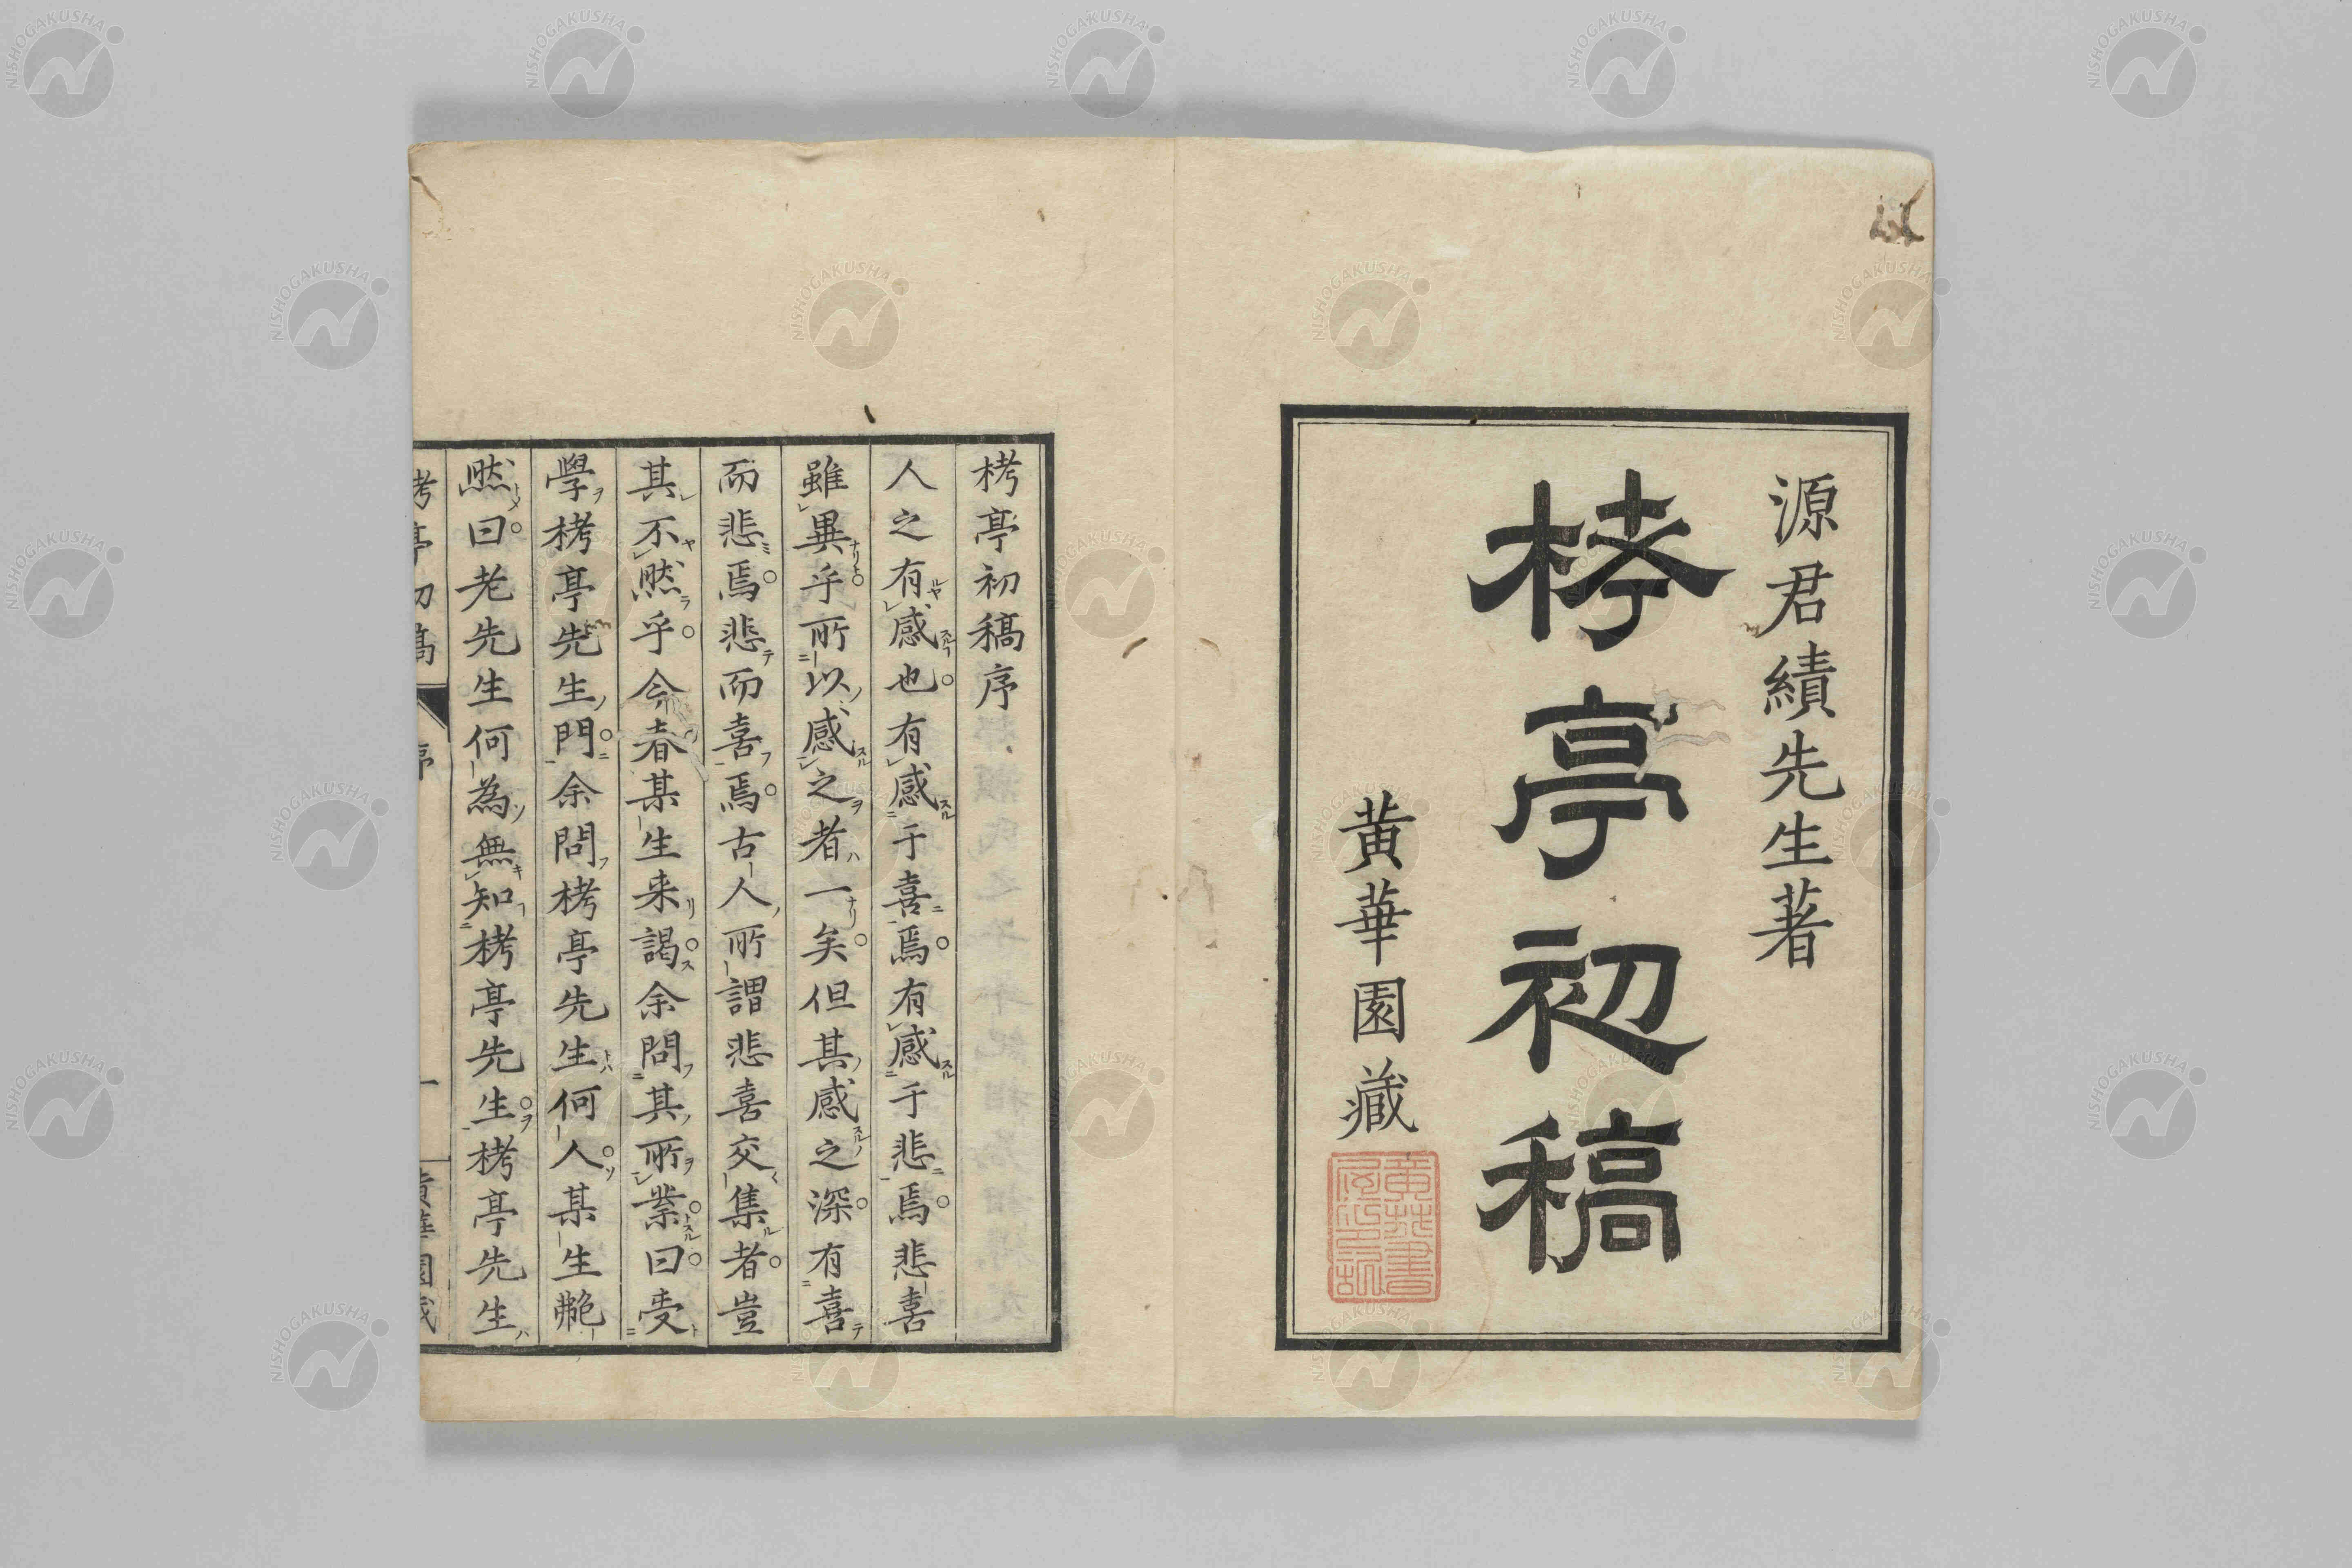 源君績先生著
栲亭初稿
黄華園藏
栲亭初稿序
人之有感也有感于喜焉有感于悲焉悲喜
雖異乎所以感之者一矣但其感之深有喜
而悲焉悲而喜焉古人所謂悲喜交集者豈
其不然乎今春某生来謁余問其所業曰受
學栲亭先生門余問栲亭先生何人某生艴
然曰老先生何為無知栲亭先生栲亭先生
栲亭初稿 序 一 黄華園藏
NISHOGAKUSHA